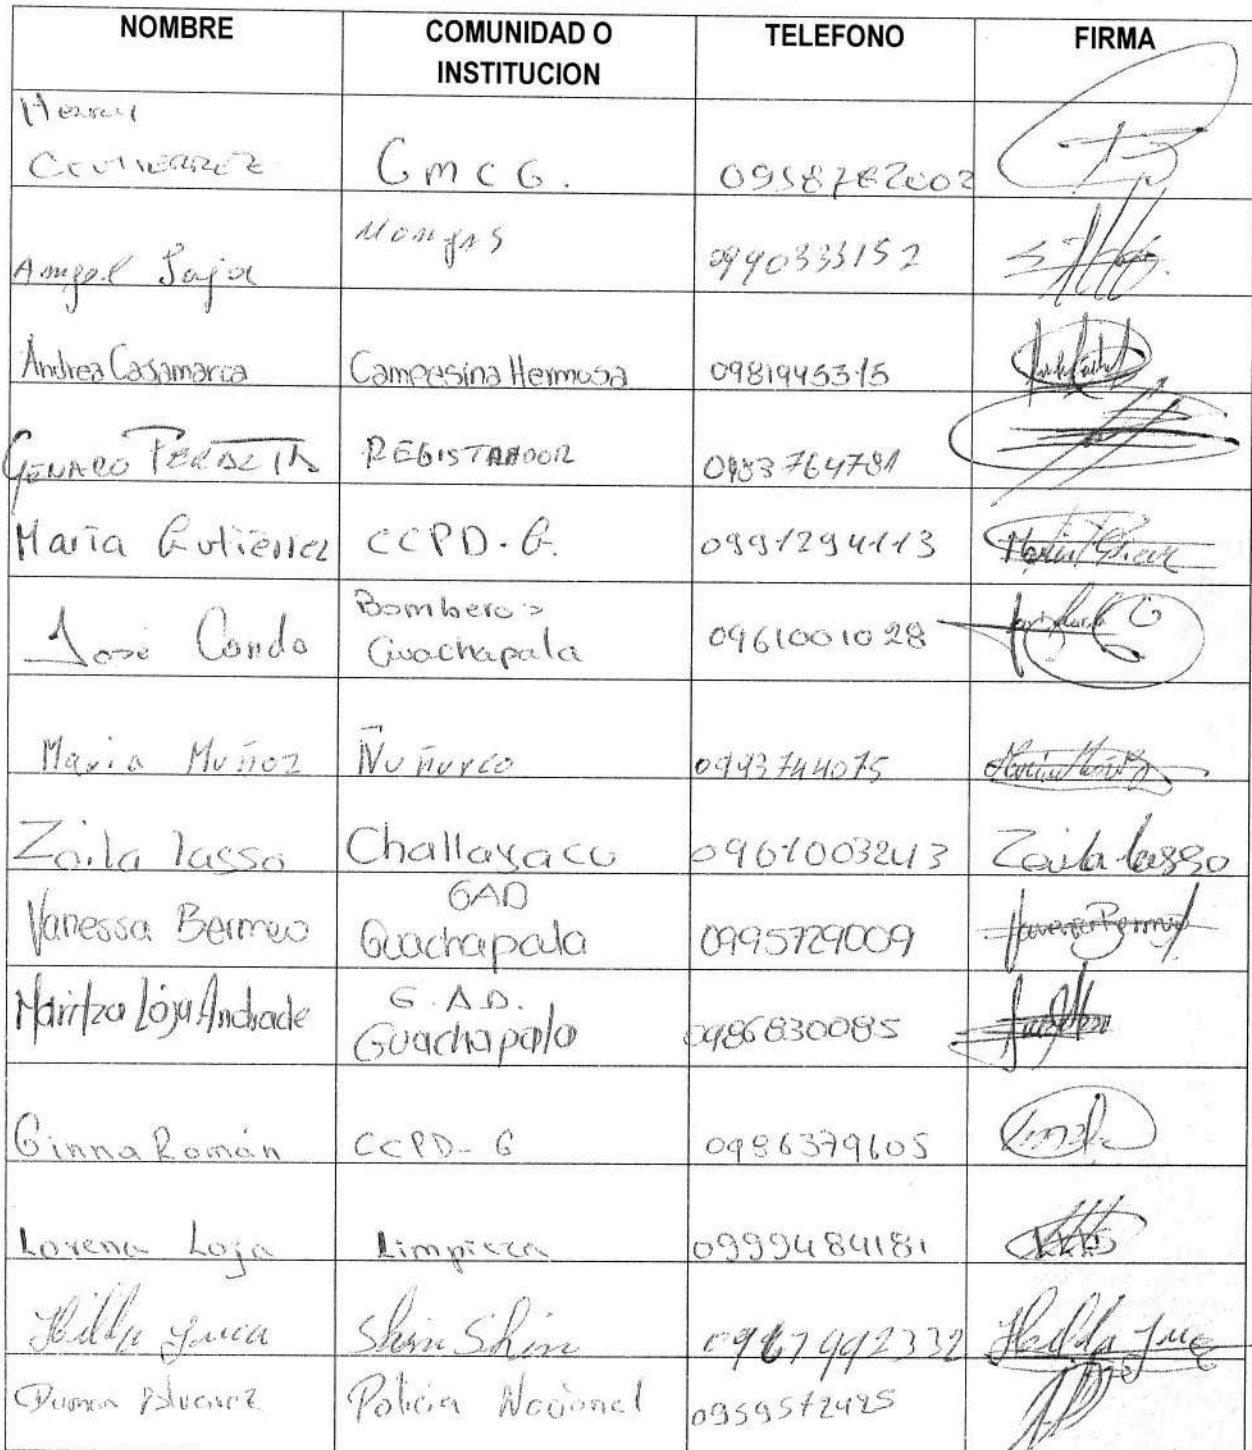 NOMBRE
COMUNIDAD O
INSTITUCION
TELEFONO
FIRMA
GMCG.
Angel
0990333152
Andrea Casamarca Campesina Hermosa 0981945315
GENARO PERALTA REGISTRADOR 0983764781
María Gutiérrez CCPD-G. 0991294113
José Condo
Bomberos
Guachapala
0961001028
Maria Muñoz Ñuñurco 0993744075
Zoila Lasso Challayacu 0961003243 Zoila Lasso
Vanessa Bermeo
GAD
Guachapala
0995729009
Maritza Loja Andrade
G.A.D.
Guachapala
0986830085
Ginna Román CCPD-G 0986379605
Lorena Loja Limpieza 0999484181
Hilda Yuca Shin Shin 0967992332
Policia Nacional 0959572425